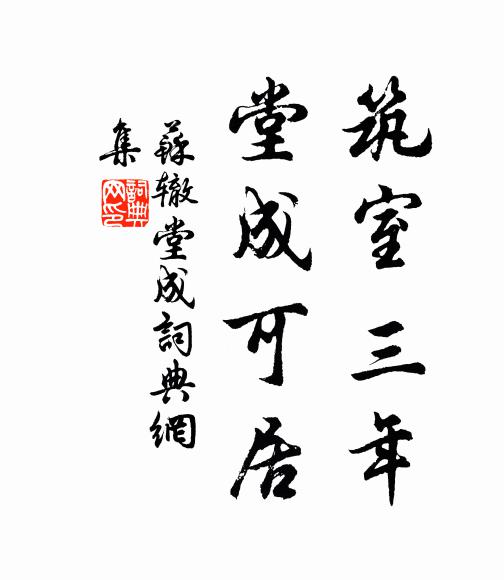 筑室三年
堂成可居
蘇辙堂成詞典網
集
詞典
网印